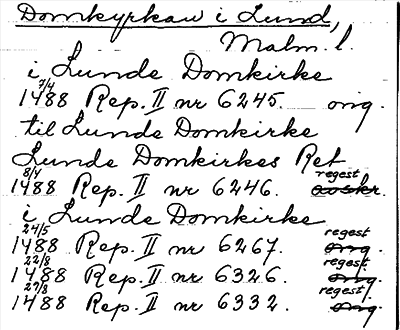 Domkyrkan i Lund,
Malm. l.
i Lunde Domkirke
7/4
1488 Rep. II nr 6245. orig.
til Lunde Domkirke
Lunde Domkirkes Ret
8/4 regest
1488 Rep. II nr 6246. avskr.
i Lunde Domkirke
24/5 regest
1488 Rep. II nr 6267. orig.
22/8 regest
1488 Rep. II nr 6326. orig.
27/8 regest
1488 Rep. II nr 6332. orig.